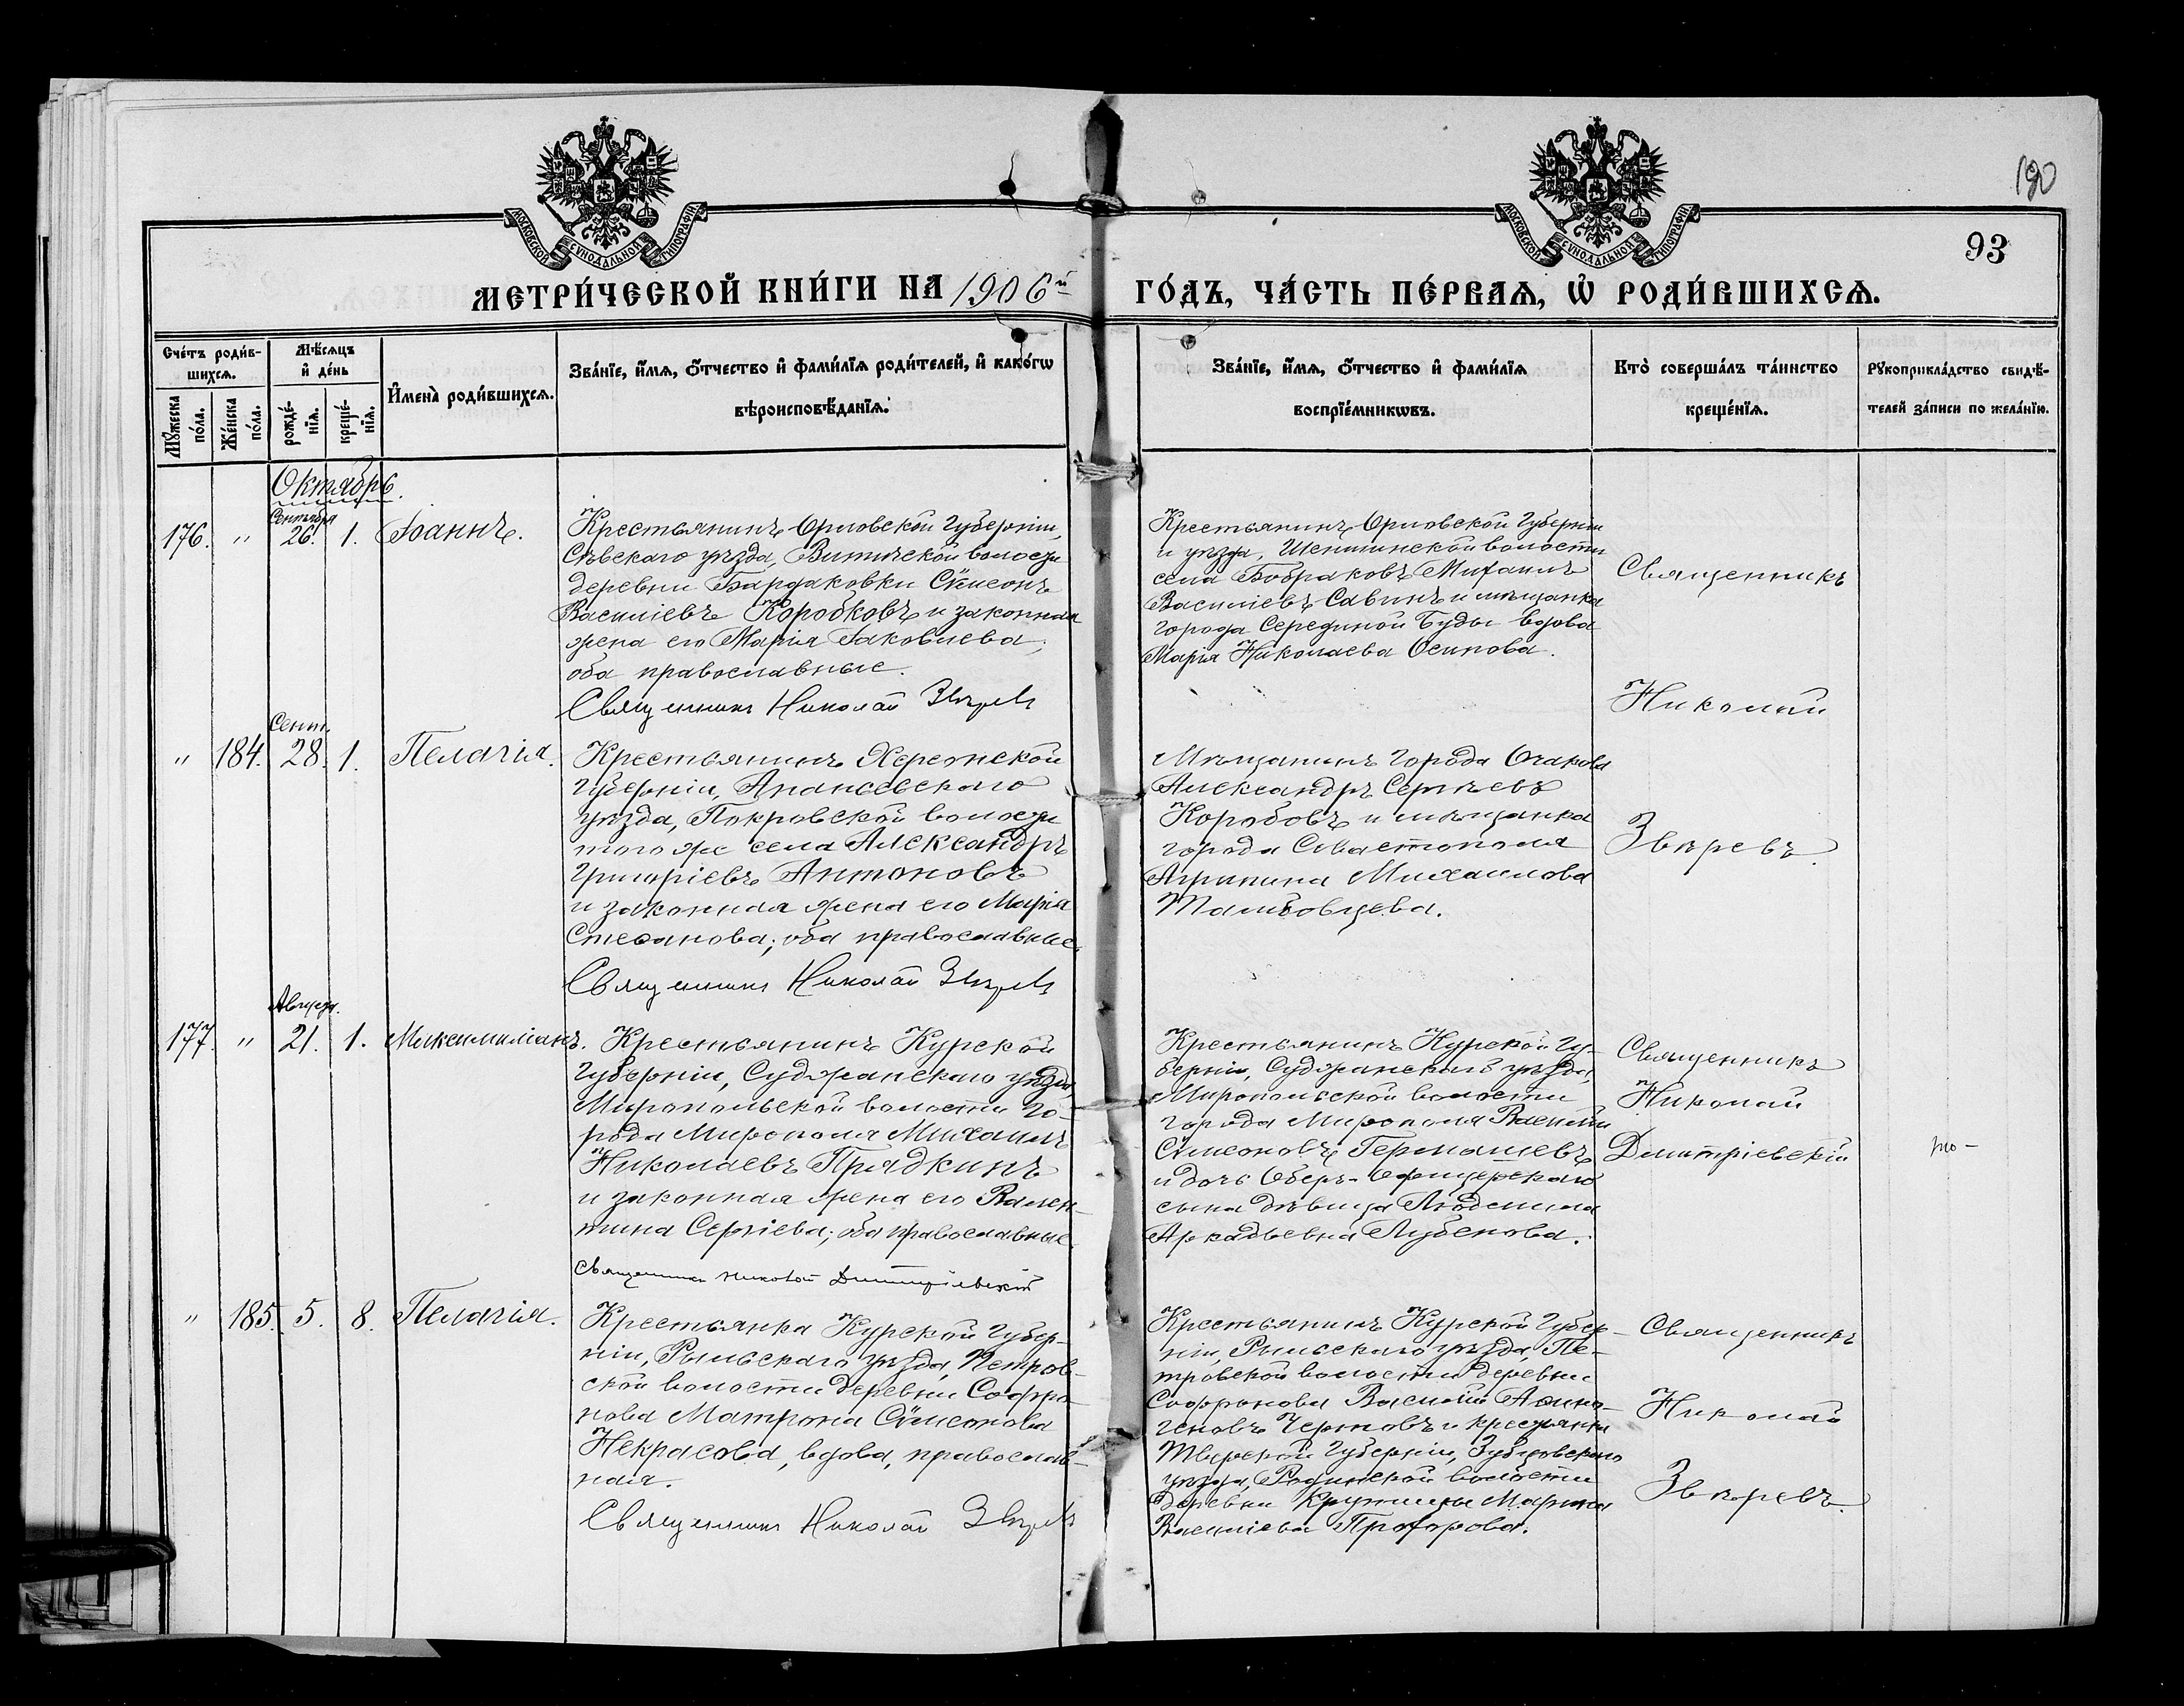 МОСКОВСКОЙ СѴНОДАЛЬНОЙ ТИПОГРАФІИ
МОСКОВСКОЙ СѴНОДАЛЬНОЙ ТИПОГРАФІИ
190
93
МЕТРИ́ЧЕСКОЙ КНИ́ГИ НА 1906й ГО́ДЪ, ЧА́СТЬ ПЕ́РВАѦ, Ѡ҆ РОДИ́ВШИХСѦ.
Сче́тъ роди́в-
шихсѧ.
Мѣ́сѧцъ
и҆ де́нь
Мꙋ́жеска по́ла.
Же́нска по́ла.
рожде́-
нїѧ.
креще́-
нїѧ.
И҆мена̀ роди́вшихсѧ.
Зва́нїе, и҆́мѧ, ѻ҆́тчество и҆ фами́лїѧ роди́телей, и҆ како́гѡ
вѣроисповѣ́данїѧ.
Зва́нїе, и҆́мѧ, ѻ҆́тчество и҆ фами́лїѧ
воспрїе́мникѡвъ.
Кто̀ соверша́лъ та́инство
креще́нїѧ.
Рꙋкоприкла́дство свидѣ́-
телей за́писи по жела́нїю.
Октябрь.
Сентября
176. " 26. 1. Іоаннъ.
Крестьянинъ Орловской Губерніи,
Сѣвскаго уѣзда, Витичской волости
деревни Бардаковки Сѵмеонъ
Василіевъ Коробковъ и законная
жена его Марія Іаковлева;
оба православные.
Священникъ Николай Звѣревъ
Крестьянинъ Орловской Губерніи
и уѣзда, Шеншинской волости
села Бобраковъ Михаилъ
Василіевъ Савинъ и мѣщанка
города Середина Буды вдова
Марія Николаева Осипова.
Священникъ
Николай
Звѣревъ.
Сент.
" 184. 28. 1. Пелагія.
Крестьянинъ Херсонской
Губерніи, Ананьевскаго
уѣзда, Покровской волости
того же села Александръ
Григоріевъ Антоновъ
и законная жена его Марія
Стефанова; оба православные.
Священникъ Николай Звѣревъ
Мѣщанинъ города Очакова
Александръ Сергѣевъ
Коробовъ и мѣщанка
города Севастополя
Агрипина Михаилова
Тамбовцева.
Августа.
177. " 21. 1. Максимиліанъ.
Крестьянинъ Курской
Губерніи, Суджанскаго уѣзда,
Миропольской волости го-
рода Мирополя Михаилъ
Николаевъ Прядкинъ
и законная жена его Вален-
тина Сергіева; оба православные.
Священникъ Николай Димитріевскій
Крестьянинъ Курской Гу-
берніи, Суджанскаго уѣзда,
Миропольской волости
города Мирополя Василій
Сѵмеоновъ Гермашевъ
и дочь Оберъ-Офицерскаго
сына дѣвица Людмила
Аркадьевна Лубенова.
Священникъ
Николай
Димитріевскій
" 185. 5. 8. Пелагія.
Крестьянка Курской Губер-
ніи, Рыльскаго уѣзда, Петров-
ской волости деревни Софро-
нова Матрона Сѵмеонова
Некрасова, вдова, православ-
ная.
Священникъ Николай Звѣревъ
Крестьянинъ Курской Губер-
ніи, Рыльскаго уѣзда, Пе-
тровской волости деревни
Софронова Василій Аѳино-
геновъ Черновъ и крестьянка
Тверской Губерніи, Зубцовскаго
уѣзда, волости
деревни Крутицы Марина
Василіева Прохорова.
Священникъ
Николай
Звѣревъ.